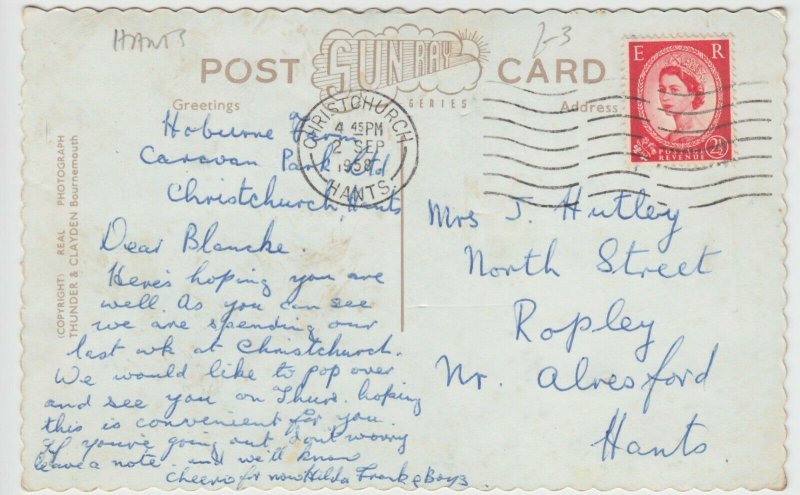 HANTS
2-3
POST CARD
SUN RAY
SERIES
Greetings
Address
E R
POSTAGE
REVENUE
2½
CHRISTCHURCH
4 45 PM
2 SEP
1958
HANTS
(COPYRIGHT) REAL PHOTOGRAPH
THUNDER & CLAYDEN Bournemouth
Hoburne Farm
Caravan Park Ltd
Christchurch, Hants
Dear Blanche.
Here's hoping you are
well. As you can see
we are spending our
last wk at Christchurch.
We would like to pop over
and see you on Thurs. hoping
this is convenient for you.
If you're going out don't worry
leave a note. and we'll know
Cheerio for now Hilda Frank & Boys.
Mrs J. Hutley
North Street
Ropley
Nr. Alresford
Hants.